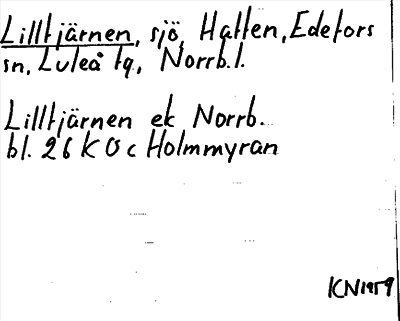 Lilltjärnen, sjö, Hatten, Edefors
sn, Luleå tg, Norrb.l.
Lilltjärnen ek Norrb.
bl. 26 K 0 c Holmmyran
KN1959